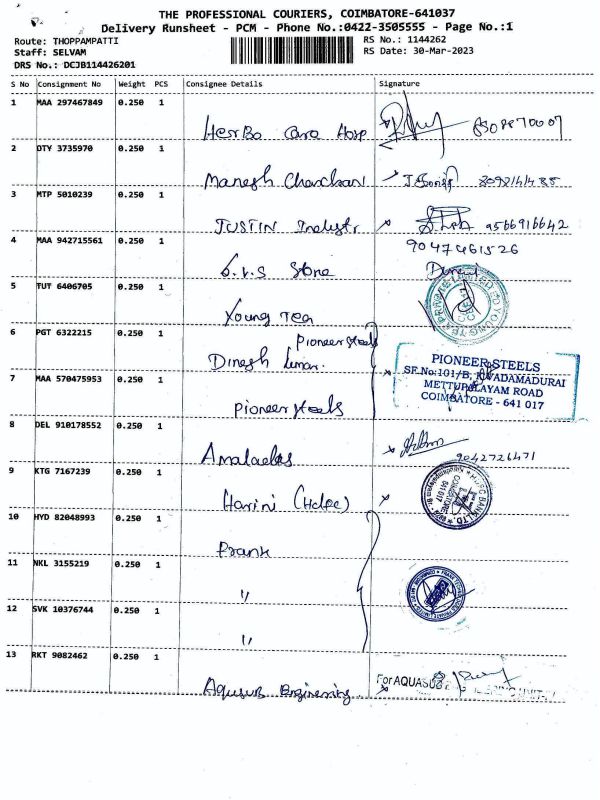 THE PROFESSIONAL COURIERS, COIMBATORE-641037
Delivery Runsheet - PCM - Phone No.:0422-3505555 - Page No.:1
Route: THOPPAMPATTI RS No.: 1144262
Staff: SELVAM RS Date: 30-Mar-2023
DRS No.: DCJB114426201
S No Consignment No Weight PCS Consignee Details Signature
1 MAA 297467849 0.250 1
Herbo Care Hosp
2 DTY 3735970 0.250 1
Manesh
3 MTP 5010239 0.250 1
JUSTIN 9566916642
4 MAA 942715561 0.250 1 9047461526
S.V.S Stone
5 TUT 6406705 0.250 1
Young Tea
6 PGT 6322215 0.250 1 Pioneer steels
Dinesh kumar.
PIONEER STEELS
SF.No:101/B, K.VADAMADURAI
METTUPALAYAM ROAD
COIMBATORE - 641 017
7 MAA 570475953 0.250 1
Pioneer steels
8 DEL 910178552 0.250 1
9042726471
9 KTG 7167239 0.250 1
Harini (Hdfc)
10 HYD 82048993 0.250 1
Prank
11 NKL 3155219 0.250 1
"
12 SVK 10376744 0.250 1
"
13 RKT 9082462 0.250 1
Aqusub Engineering For AQUASUB